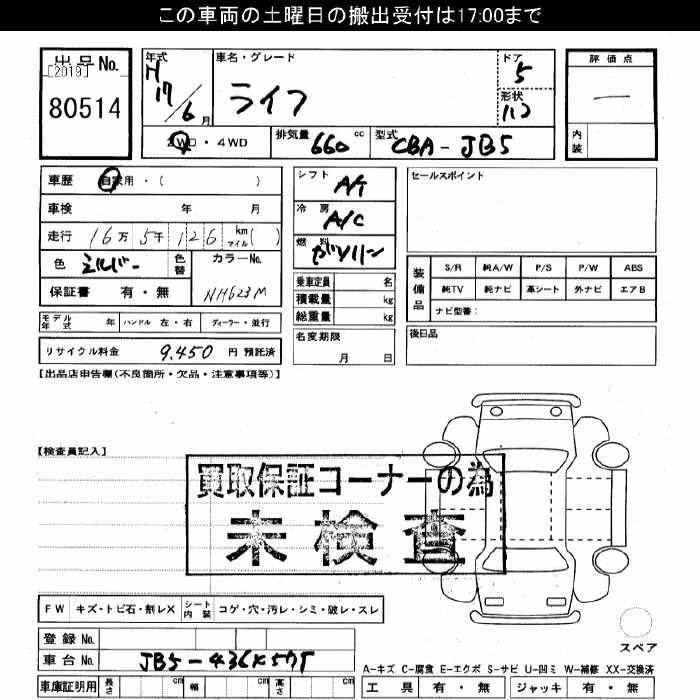 この車両の土曜日の搬出受付は17:00まで
出品No.
[2019]
80514
年式
H
17/6月
車名・グレード
ライフ
ドア
5
形状
ハコ
評価点
―
内装
2WD・4WD
排気量 660 cc
型式 CBA-JB5
車歴 自家用・( )
車検 年 月
走行 16万 5千 126 km マイル( )
色 シルバー
色替
カラーNo.
NH623M
保証書 有・無
シフト A/T
冷房 A/C
燃料 ガソリン
乗車定員 名
積載量 kg
総重量 kg
セールスポイント
装備品
S/R 純A/W P/S P/W ABS
純TV 純ナビ 革シート 外ナビ エアB
ナビ型番:
モデル年式 年 ハンドル 左・右 ディーラー・並行
リサイクル料金 9,450 円 預託済
名変期限
月 日
後日品
【出品店申告欄(不良箇所・欠品・注意事項等)】
【検査員記入】
買取保証コーナーの為
未検査
FW キズ・トビ石・割レX シート内装 コゲ・穴・汚レ・シミ・破レ・スレ
スペア
登録No.
車台No.
A-キズ C-腐食 E-エクボ S-サビ U-凹ミ W-補修 XX-交換済
車庫証明用 長さ cm 幅 cm 高さ cm
工具 有・無 ジャッキ 有・無